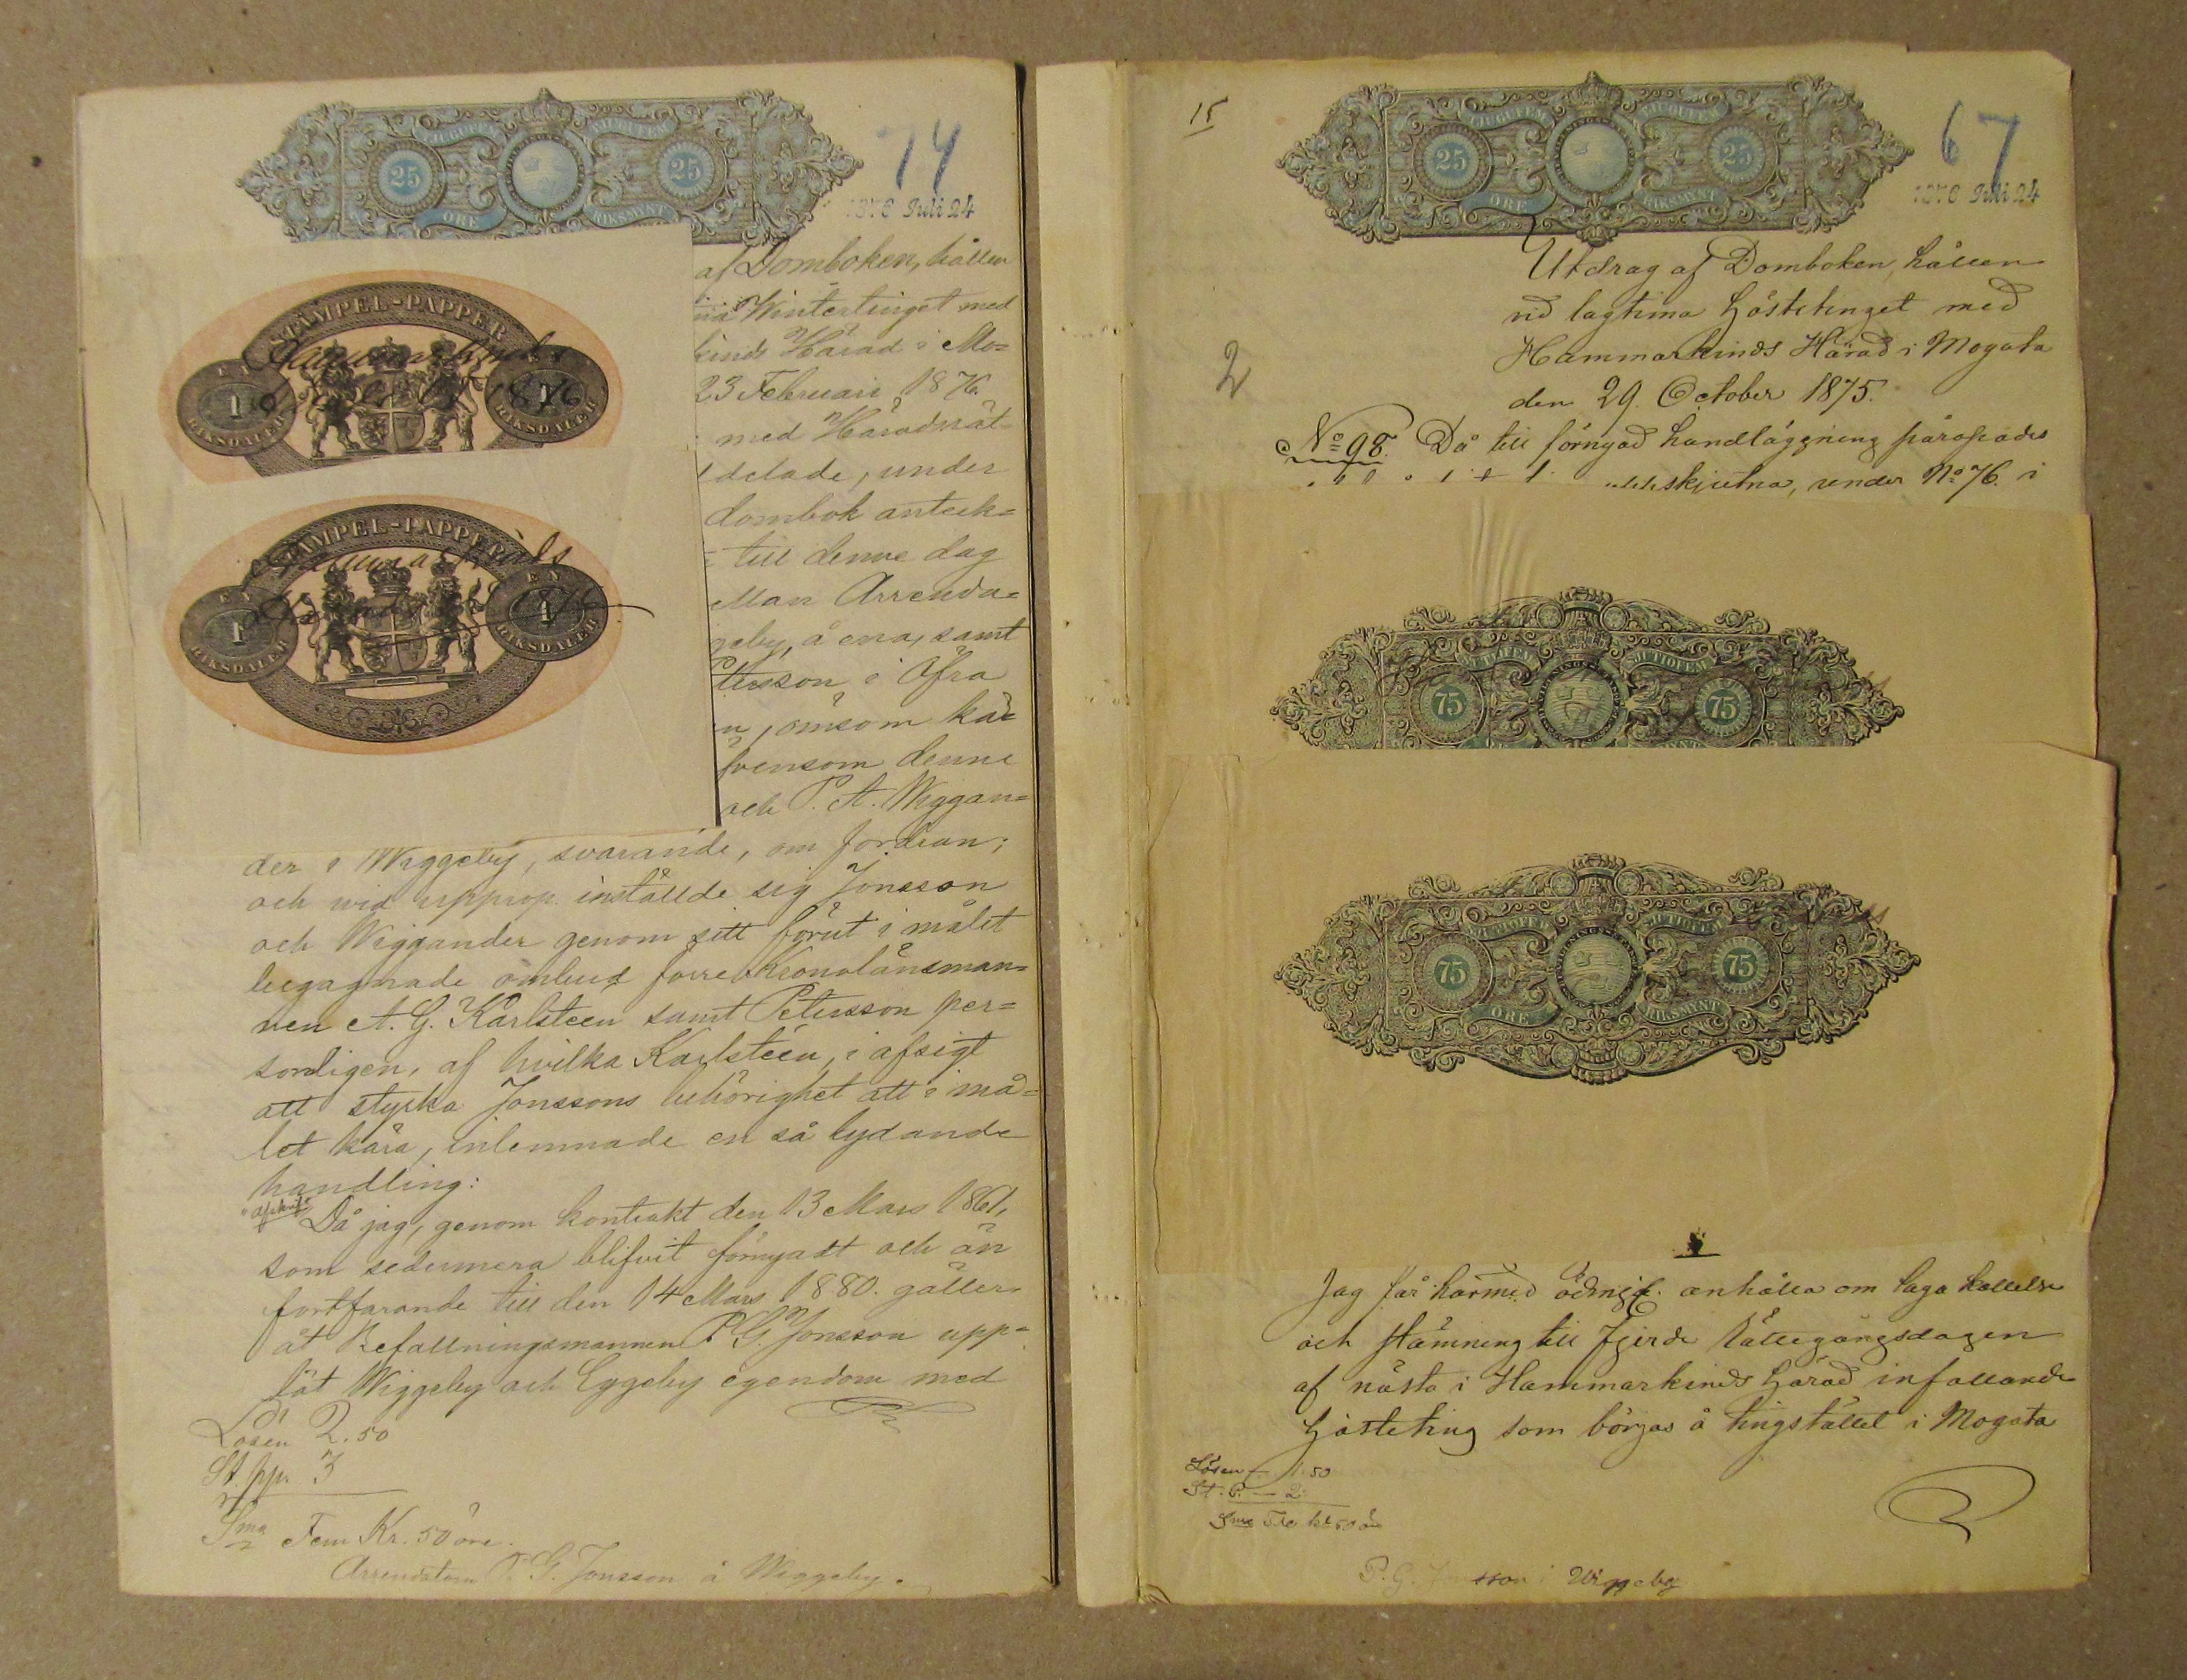 TJUGUFEM TJUGUFEM
25 25
ÖRE RIKSMYNT
74
1876 Juli 24
af Domboken, hållen
Wintertinget med
kinds Härad i Mo=
23 Februari 1876.
med Häradsrät=
delade, under
dombok anteck=
till denne dag
Man Arrenda=
geby, å ena, samt
Petersson i Öfra
, ömsom kä=
även som denne
och P. A. Wiggan=
STÄMPEL-PAPPER
Hammarkinds
EN
1 1
RIKSDALER RIKSDALER
1876
STÄMPEL-PAPPER
Hammarkinds
EN EN
1 1
RIKSDALER RIKSDALER
1876
der i Wiggeby, svarande, om fordran;
och vid upprop inställde sig Jonsson
och Wiggander genom sitt förut i målet
begagnade ombud förre Kronolänsman=
nen A. G. Karlsteen samt Petersson per=
sonligen, af hvilka Karlsteen, i afsigt
att styrka Jonssons behörighet att i må=
let kära, inlemnade en så lydande
handling:
"Afskrift
Då jag, genom kontrakt den 13 Mars 1861,
som sedermera blifvit förnyadt och än
fortfarande till den 14 Mars 1880. gäller,
åt Befallningsmannen P G Jonsson upp=
låt Wiggeby och Eggeby egendom med
Lösen 2.50
St. ppr. 3
Sma Fem Kr. 50 öre.
Arrendatorn P. G. Jonsson å Wiggeby.
15
TJUGUFEM TJUGUFEM
25 25
ÖRE RIKSMYNT
67
1876 Juli 24
2
Utdrag af Domboken, hållen
vid lagtima Höstetinget med
Hammarkinds Härad i Mogata
den 29. October 1875.
No 98. Då till förnyad handläggning påropades
uppskjutna, under No 76. i
SJUTTIOFEM SJUTTIOFEM
75 75
SJUTTIOFEM SJUTTIOFEM
75 75
ÖRE RIKSMYNT
Jag får härmed ödmjk. anhålla om laga kallelse
och stämning till Fjerde Rättegångsdagen
af nästa i Hammarkinds Härad infallande
Hösteting som börjas å tingstället i Mogata
Lösen — 1.50
St. P. — 2
Sma Tre kr 50 öre
P. G. Jonsson i Wiggeby